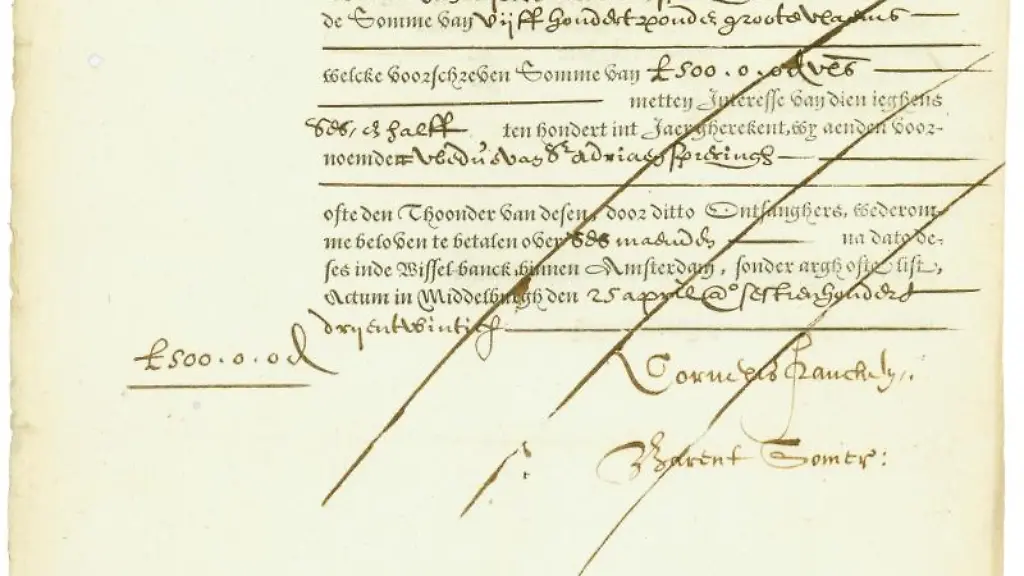 de Somme van vijff hondert ponden groote vlaems
welcke voorschreven Somme van £ 500.0.0d vls
metten Interesse van dien ieghens
ses, en halff ten hondert int Jaer gherekent, wy aenden voor-
noemden van Sr Adriaen
ofte den Thoonder van desen, door ditto Ontfanghers, wederom-
me beloven te betalen over ses maenden na dato de-
ses inde Wissel-banck binnen Amsterdam, sonder argh ofte list,
Actum in Middelburgh den 25 april @o sesthienhondert
drijentwintich
£500.0.0d
Cornelis
Barent Somer: